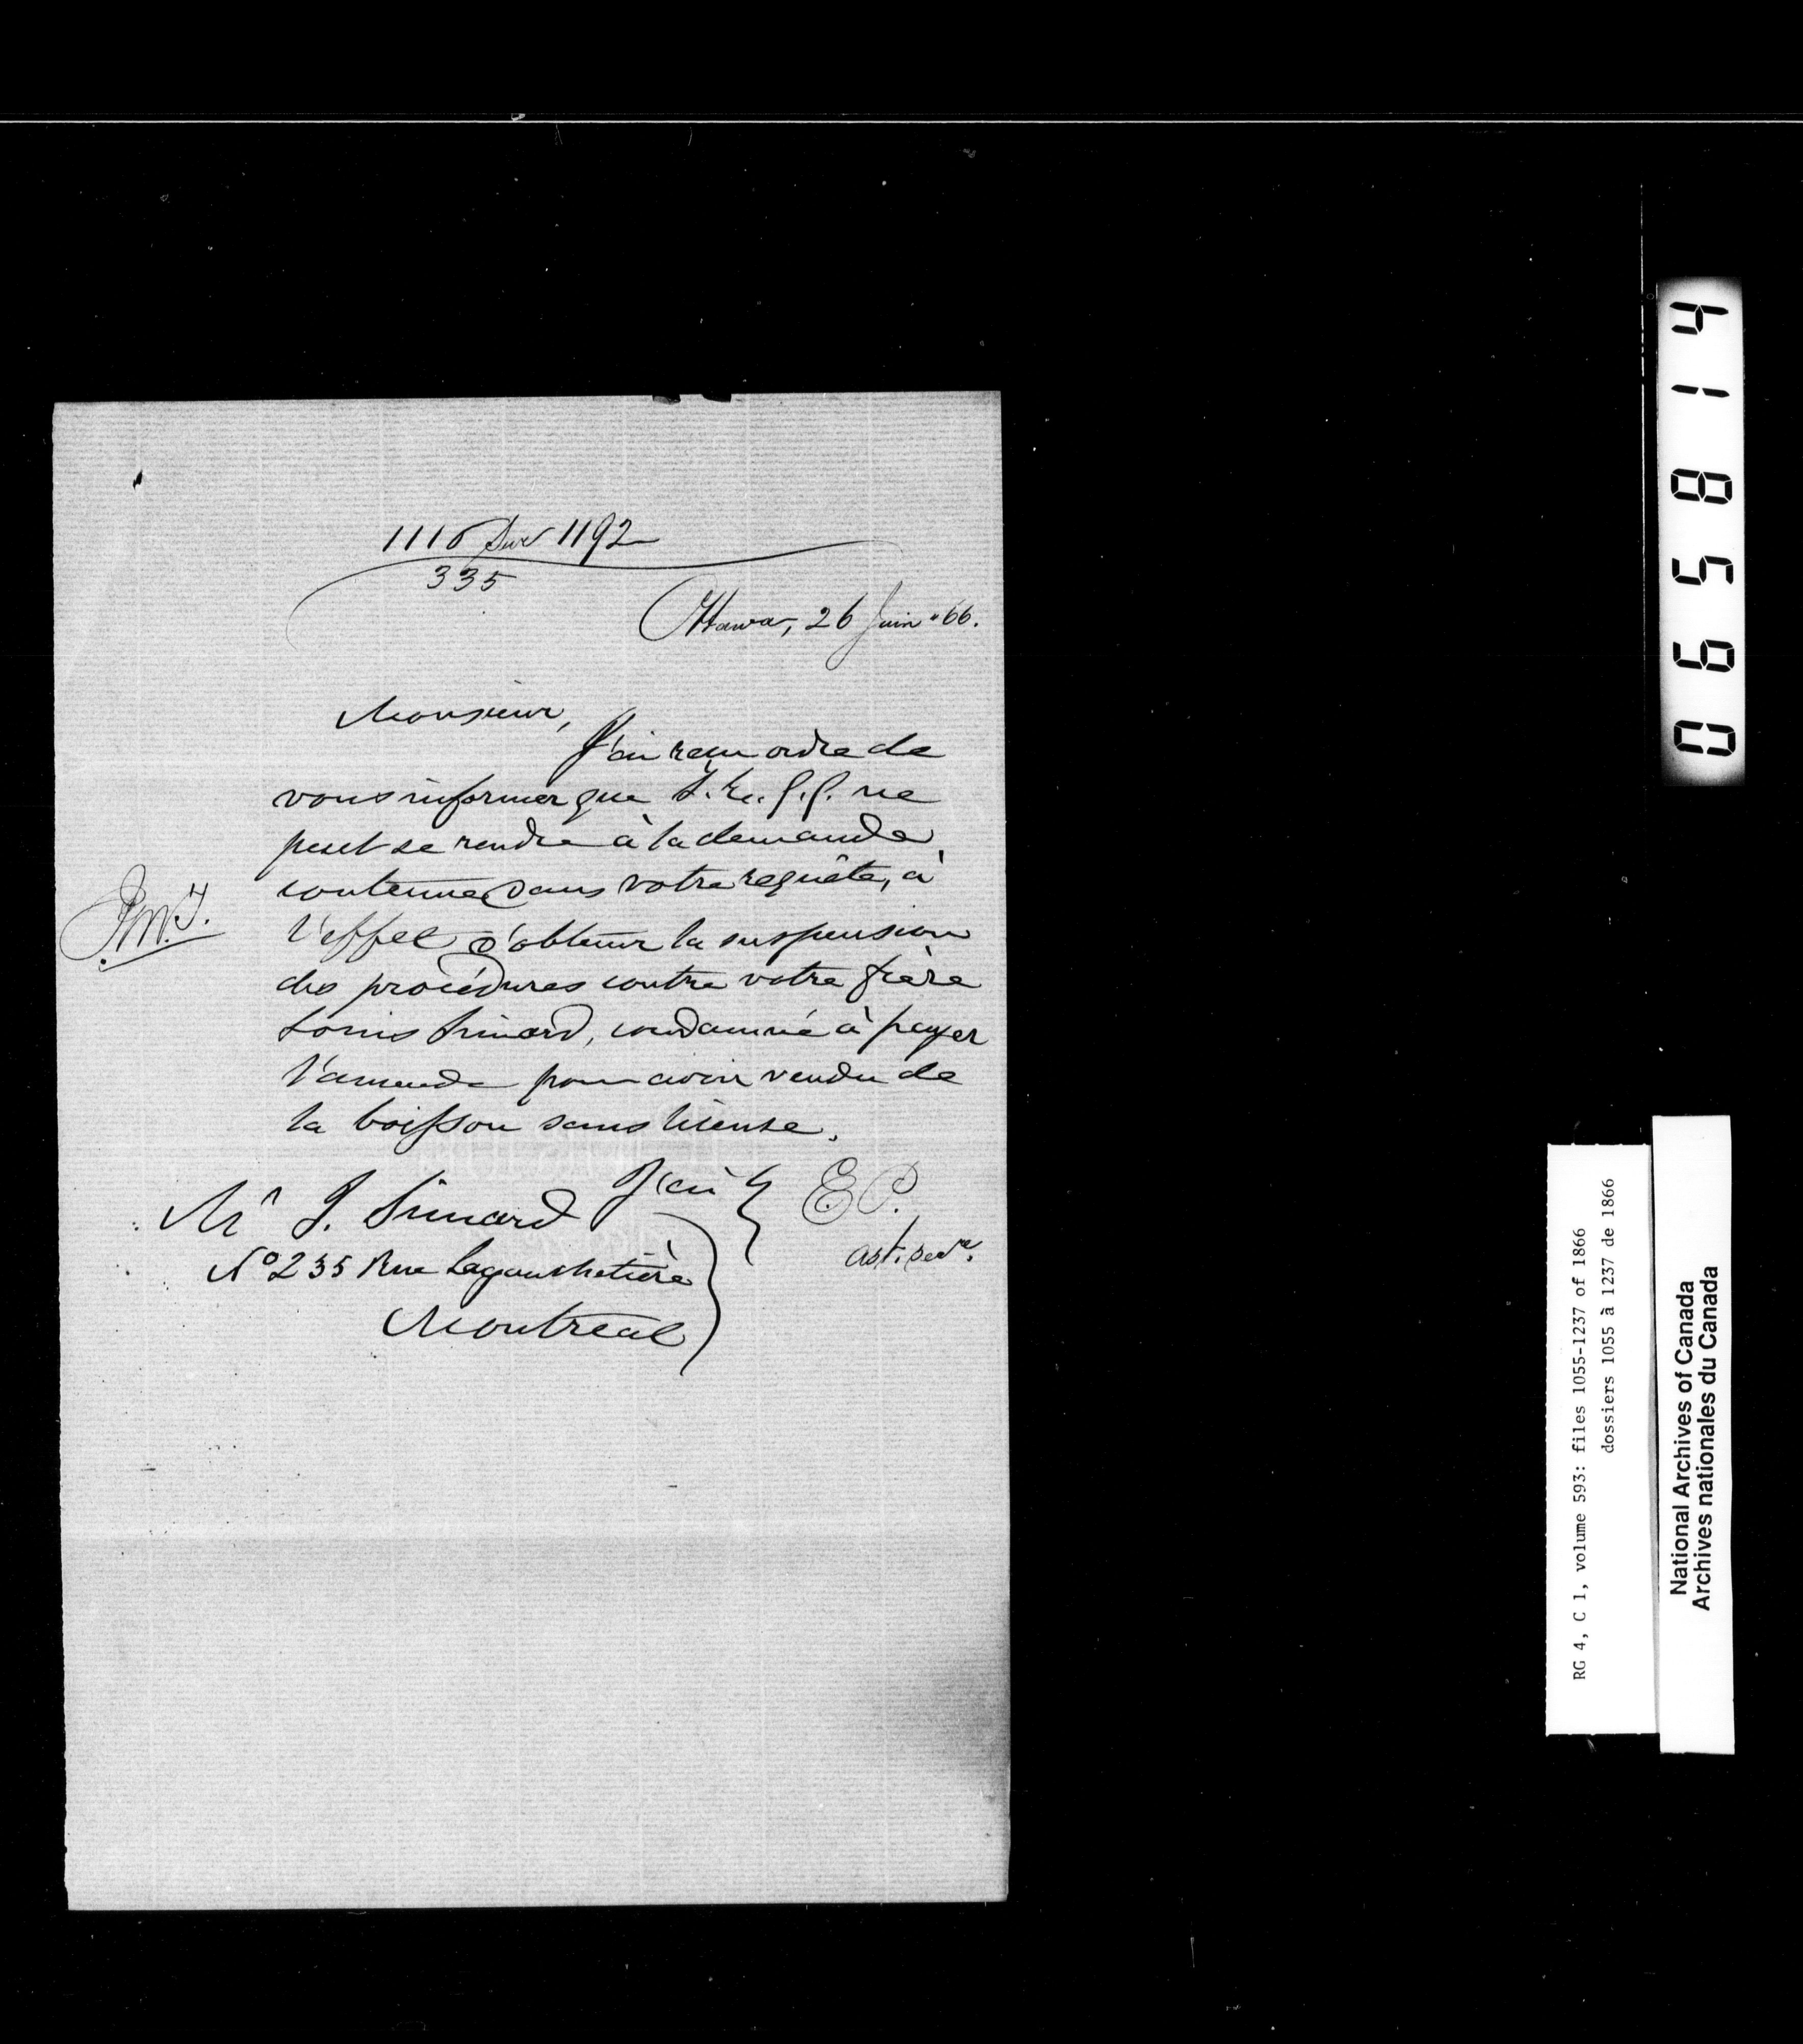 1116 Sur 1192
335
Ottawa, 26 Juin "66.
Monsieur,
J'ai reçu ordre de
vous informer que S. Ex. G. G. ne
peut se rendre à la demande
contenue dans votre requête, à
l'effet d'obtenir la suspension
des procédures contre votre frère
Louis Simard, condamné à payer
l'amende pour avoir vendu de
la boisson sans license.
J'ai &
E P.
ast. secre.
Mr J. Simard
No 235 Rue Lagauchetière
Montreal
065814
RG 4, C 1, volume 593: files 1055-1237 of 1866
dossiers 1055 à 1237 de 1866
National Archives of Canada
Archives nationales du Canada